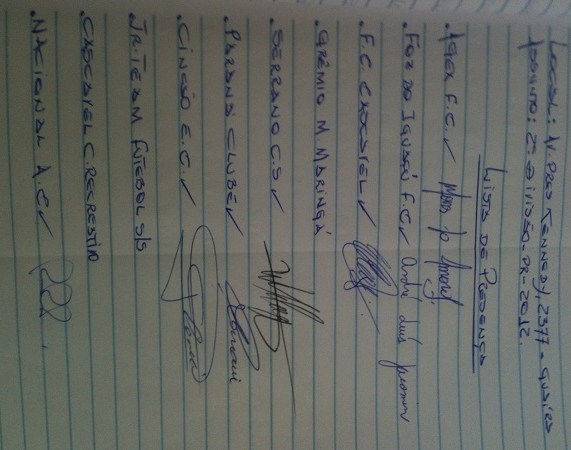 LOCAL: AV. PRES KENNEDY, 2377 - GUAÍRA
ASSUNTO: 2ª DIVISÃO-PR-2012.
LISTA DE PRESENÇA
AGEX F.C. /
FOZ DO IGUAÇÚ F.C. / André Luis
F.C. CASCAVEL /
GRÊMIO M MARINGÁ
SERRANO C.S /
PARANÁ CLUBE /
CINCÃO E.C. /
JR. TEAM FUTEBOL S/S
CASCAVEL C. RECREATIVO
NACIONAL A.C. /